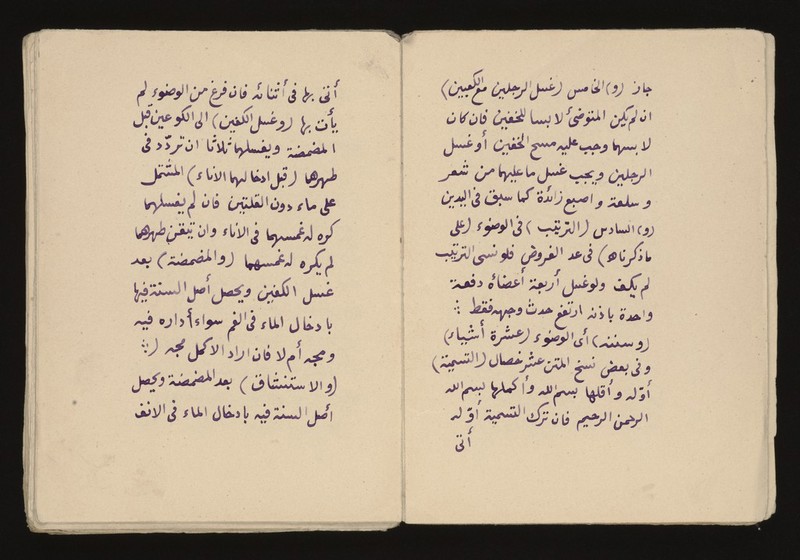 جاز (و) الخامس (غسل الرجلين مع الكعبين)
ان لم يكن المتوضئ لابسا للخفين فان كان
لابسهما وجب عليه مسح الخفين أو غسل
الرجلين ويجب غسل ما عليهما من شعر
و سلعة و اصبع زائدة كما سبق فى اليدين
(و) السادس (الترتيب) فى الوضوء (على
ما ذكرناه) فى عد الفروض فلو نسى الترتيب
لم يكف ولو غسل أربعة أعضاءه دفعة
واحدة باذنه ارتفع حدث وجهه فقط
(وسننه) أى الوضوء (عشرة أشياء)
وفى بعض نسخ المتن عشر خصال (التسمية)
أوله وأقلها بسم الله وأكملها بسم الله
الرحمن الرحيم فان ترك التسمية أوله
أتى
أتى بها فى أثنائه فان فرغ من الوضوء لم
يأت بها (وغسل الكفين) الى الكوعين قبل
المضمضة ويغسلهما ثلاثا ان تردّد فى
طهرهما (قبل ادخالهما الاناء) المشتمل
على ماء دون القلتين فان لم يغسلهما
كره له غمسهما فى الاناء وان تيقن طهرهما
لم يكره له غمسهما (والمضمضة) بعد
غسل الكفين ويحصل أصل السنة فيها
بادخال الماء فى الفم سواء أداره فيه
ومجه أم لا فان اراد الاكمل مجه (
(والاستنشاق) بعد المضمضة ويحصل
أصل السنة فيه بادخال الماء فى الانف